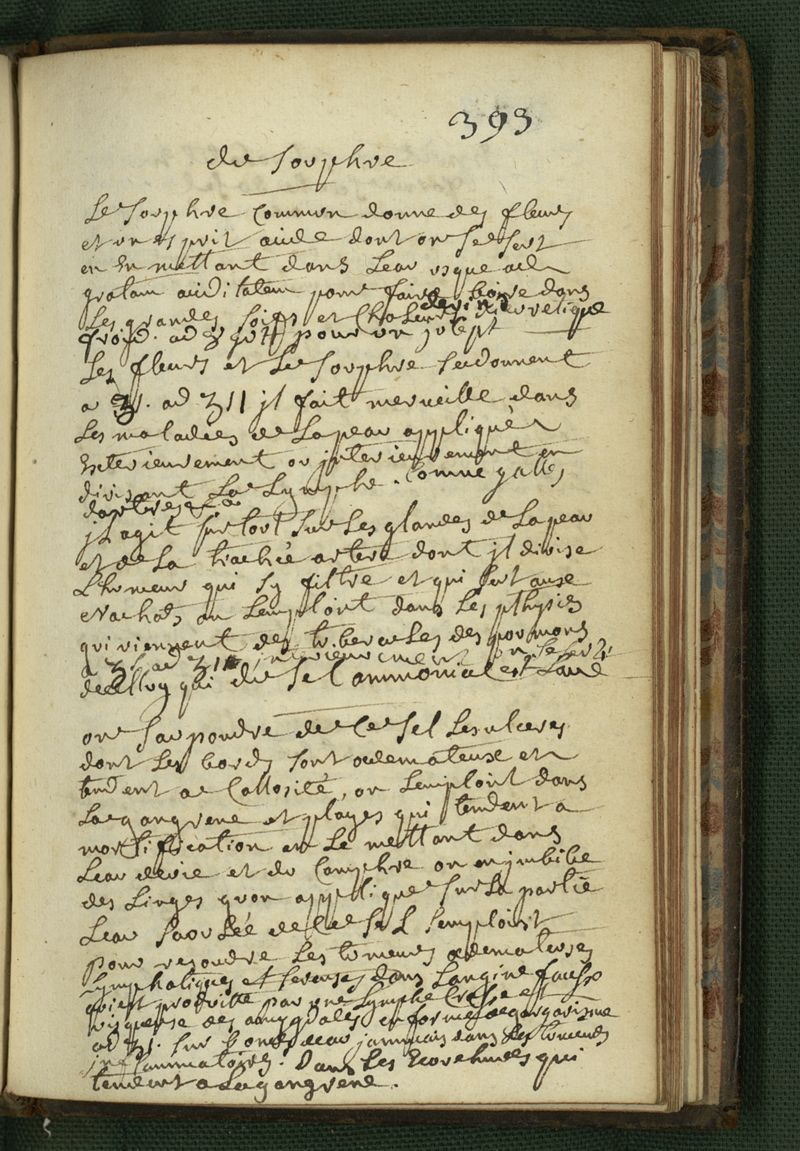 393
du Souphre
Le Souphre Common donne des fleurs
et un esprit acide dont on Se Sert
en En mettant dans Leau usque ad
gratam aciditatem pour faire boire dans
Les grandes Soifs et Chaleurs diurretique
froid. ad pour un julept
Les fleurs et Le Souphre Se donnent
a ad jl fait merveille dans
Les maladies de La peau appliqué
Exterieurement ou jnterieurement en
divisant La Lymphe. Comme galles
dartres &a
jl agit Sur tout Sur Les glandes de La peau
et de La trachée artere dont jl divise
L'humeur qui Sy filtre et qui Sert aux
Crachats on Lemploit dans Les pthysies
qui viennent des tubercules des poumons
a ad interieurement on Se Sert
de Celluy qui du Sel ammoniac est Lavé
on Saupoudre de Ce Sel Les ulceres
dont Les bords Sont oedemateux et
tendent a Callosité, on Lemploit dans
La gangrene et playes qui tendent a
mortification en Le mettant dans
Leau de vie et du Camphre on en jmbibe
des Linges quon applique Sur La partie
Leau Saoulée de Ce Sel Semploit
pour resoudre Les tumeurs oedemateuses
Lymphatiques et Sereuses dans Langine fausse
qui est produitte par une Lymphe Crasse et
visqueuse des amygdales en forme de gargarisme
ad Sur d'eau jammais dans Les tumeurs
jnflammatoires. Dans Les Ecrouhelles qui
tendent a La gangrene.